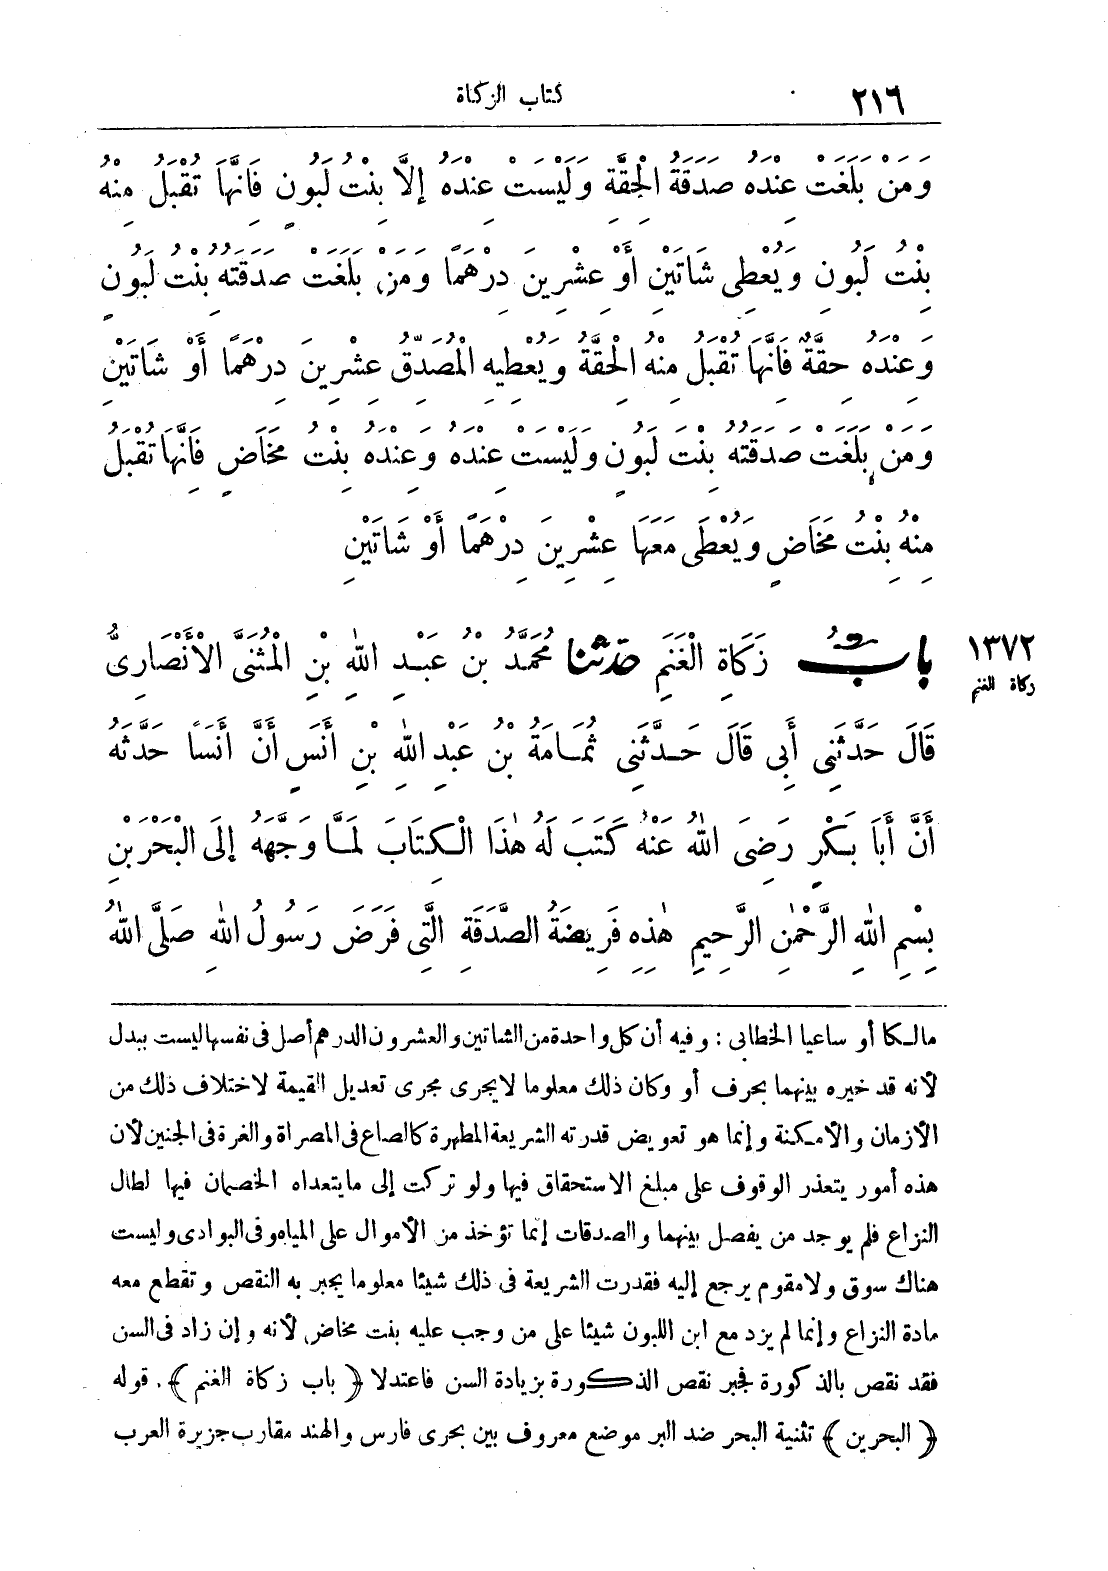 ٢١٦ كتاب الزكاة
وَمَنْ بَلَغَتْ عِنْدَهُ صَدَقَةُ الْحِقَّةِ وَلَيْسَتْ عِنْدَهُ إِلَّا بِنْتُ لَبُونٍ فَإِنَّهَا تُقْبَلُ مِنْهُ
بِنْتُ لَبُونٍ وَيُعْطِى شَاتَيْنِ أَوْ عِشْرِينَ دِرْهَمًا وَمَنْ بَلَغَتْ صَدَقَتُهُ بِنْتَ لَبُونٍ
وَعِنْدَهُ حِقَّةٌ فَإِنَّهَا تُقْبَلُ مِنْهُ الْحِقَّةُ وَيُعْطِيهِ الْمُصَدِّقُ عِشْرِينَ دِرْهَمًا أَوْ شَاتَيْنِ
وَمَنْ بَلَغَتْ صَدَقَتُهُ بِنْتَ لَبُونٍ وَلَيْسَتْ عِنْدَهُ وَعِنْدَهُ بِنْتُ مَخَاضٍ فَإِنَّهَا تُقْبَلُ
مِنْهُ بِنْتُ مَخَاضٍ وَيُعْطَى مَعَهَا عِشْرِينَ دِرْهَمًا أَوْ شَاتَيْنِ
١٣٧٢ بابُ زَكَاةِ الْغَنَمِ حدّثنا مُحَمَّدُ بْنُ عَبْدِ اللهِ بْنِ الْمُثَنَّى الْأَنْصَارِىُّ
زكاة الغنم
قَالَ حَدَّثَنِى أَبِى قَالَ حَدَّثَنِى ثُمَامَةُ بْنُ عَبْدِ اللهِ بْنِ أَنَسٍ أَنَّ أَنَسًا حَدَّثَهُ
أَنَّ أَبَا بَكْرٍ رَضِىَ اللهُ عَنْهُ كَتَبَ لَهُ هٰذَا الْكِتَابَ لَمَّا وَجَّهَهُ إِلَى الْبَحْرَيْنِ
بِسْمِ اللهِ الرَّحْمٰنِ الرَّحِيمِ هٰذِهِ فَرِيضَةُ الصَّدَقَةِ الَّتِى فَرَضَ رَسُولُ اللهِ صَلَّى اللهُ
مالكا أو ساعيا الخطابى : وفيه أن كل واحدة من الشاتين والعشرون الدرهم أصل فى نفسها ليست ببدل
لأنه قد خيره بينهما بحرف أو وكان ذلك معلوما لا يجرى مجرى تعديل القيمة لاختلاف ذلك من
الأزمان والأمكنة وإنما هو تعويض قدرته الشريعة المطهرة كالصاع فى المصراة والغرة فى الجنين لأن
هذه أمور يتعذر الوقوف على مبلغ الاستحقاق فيها ولو تركت إلى ما يتعداه الخصمان فيها لطال
النزاع فلم يوجد من يفصل بينهما والصدقات إنما تؤخذ من الأموال على المياه وفى البوادى وليست
هناك سوق ولا مقوم يرجع إليه فقدرت الشريعة فى ذلك شيئا معلوما يجبر به النقص وتقطع معه
مادة النزاع وإنما لم يزد مع ابن اللبون شيئا على من وجب عليه بنت مخاض لأنه وإن زاد فى السن
فقد نقص بالذكورة فجبر نقص الذكورة بزيادة السن فاعتدلا ﴿ باب زكاة الغنم ﴾ . قوله
﴿ البحرين ﴾ تثنية البحر ضد البر موضع معروف بين بحرى فارس والهند مقارب جزيرة العرب